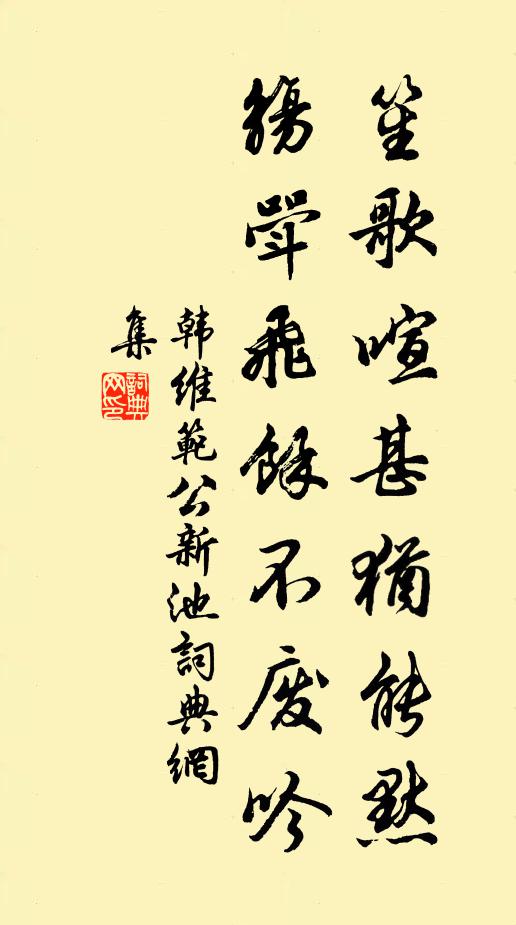 笙歌喧甚猶能默
觴斝飛餘不废吟
韩維範公新池詞典網
集
詞典
网印